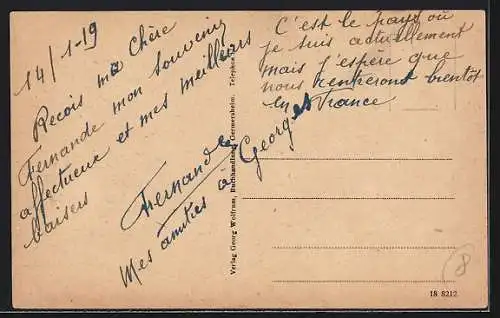 14/1-19
Reçois ma Chère
Fernande mon souvenir
affectueux et mes meilleurs
baisers
Fernande
Mes amitiés à Georges
C'est le pays où
je suis actuellement
mais j'espère que
nous rentreront bientot
en France
Verlag Georg Wolfrum, Buchhandlung, Germersheim. Telephon
18 8212
8